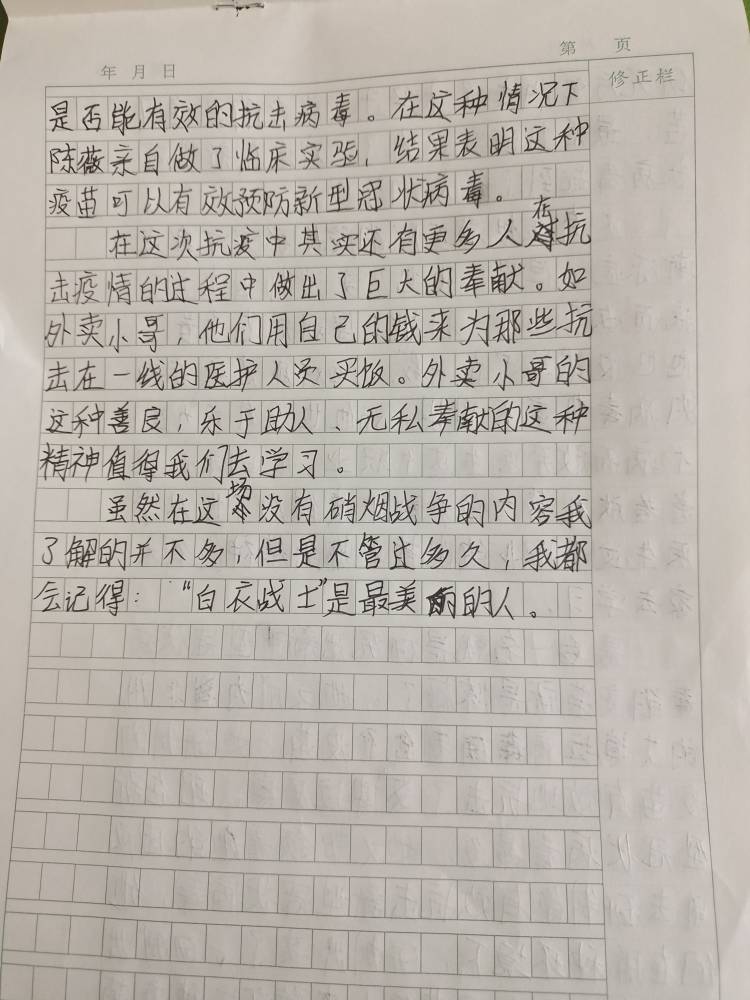 年 月 日
第 页
修正栏
是否能有效的抗击病毒。在这种情况下
陈薇亲自做了临床实验，结果表明这种
疫苗可以有效预防新型冠状病毒。
在这次抗疫中其实还有更多人在抗
击疫情的过程中做出了巨大的奉献。如
外卖小哥，他们用自己的钱来为那些抗
击在一线的医护人员买饭。外卖小哥的
这种善良，乐于助人、无私奉献的这种
精神值得我们去学习。
虽然在这场没有硝烟战争的内容我
了解的并不多，但是不管过多久，我都
会记得：“白衣战士”是最美丽的人。